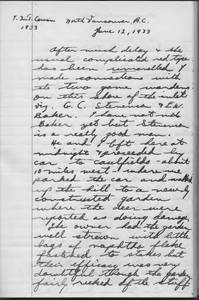 T. McT. Cowan North Vancouver, B.C.
1933 June 12, 1933
After much delay & the
usual complicated red type
has been unravelled I
made connections with
the two game wardens
on this Shore of the inlet
viz. G. C. Stevenson & E.W.
Baker. I have not met
Baker yet but Stevenson
is a really good man.
He and I left here at
& proceeded by
car to Caulfields - about
10 miles west. where we
parked the car and walked
up the hill to a newly
constructed garden
where the deer were
reported as doing damage.
The owner had the garden
well strewn with little
bags of naphtha flake
fastened to stakes but
their efficacy was very
doubtful though the garden
fairly reeked of the stuff